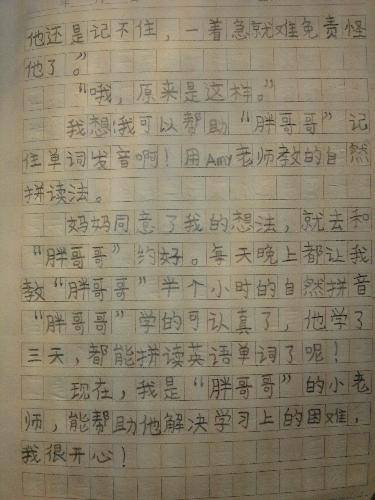 他还是记不住，一着急就难免责怪
他了。”
“哦，原来是这样。”
我想：我可以帮助“胖哥哥”记
住单词发音啊！用Amy老师教的自然
拼读法。
妈妈同意了我的想法，就去和
“胖哥哥”约好。每天晚上都让我
教“胖哥哥”半个小时的自然拼音
“胖哥哥”学的可认真了，他学了
三天，都能拼读英语单词了呢！
现在，我是“胖哥哥”的小老
师，能帮助他解决学习上的困难，
我很开心！